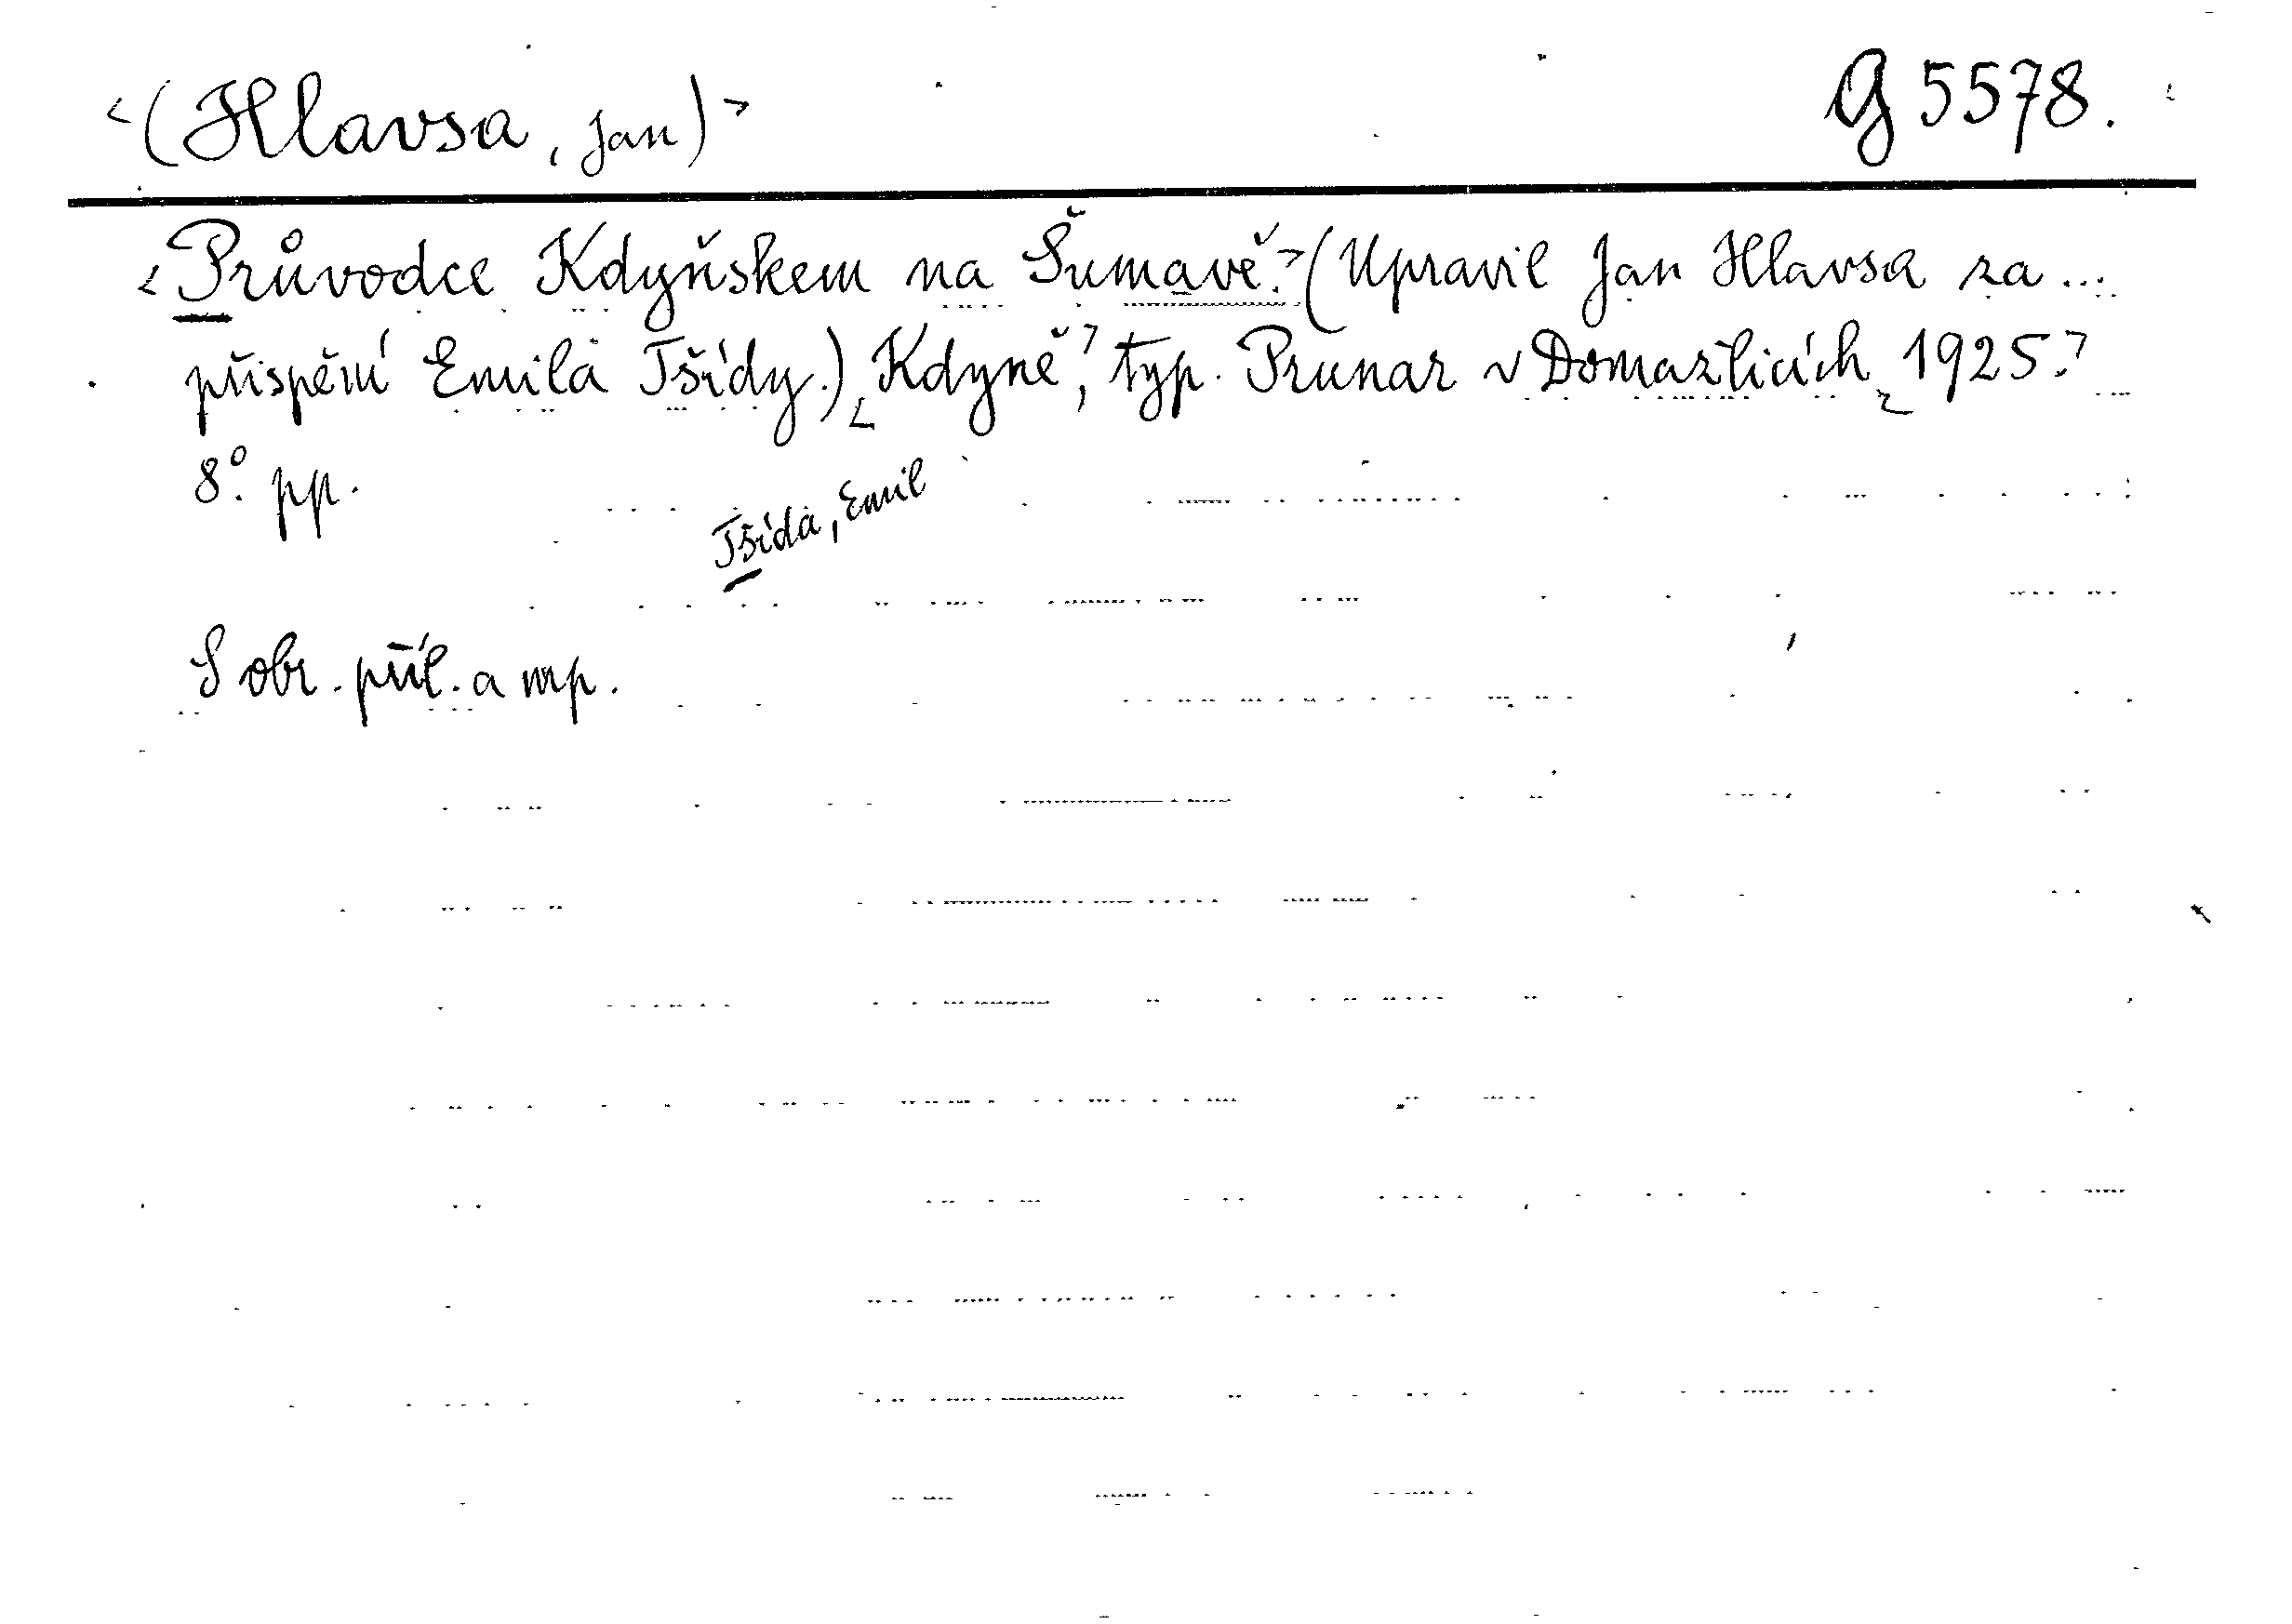 <(Hlavsa, Jan)> G 5578.
<Průvodce Kdyňskem na Šumavě.>(Upravil Jan Hlavsa za...
přispění Emila Tšídy.) <Kdyně,> typ. Prunar v Domažlicích <1925.>
8°. pp.
Tšída, Emil
S obr. příl. a mp.